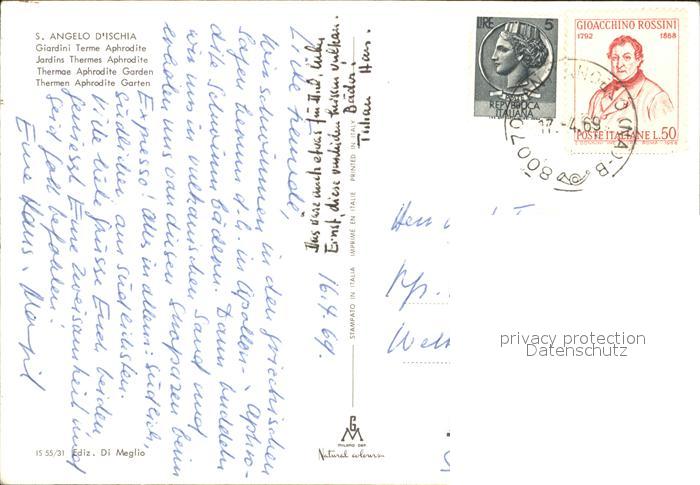 S. ANGELO D'ISCHIA
Giardini Terme Aphrodite
Jardins Thermes Aphrodite
Thermae Aphrodite Garden
Thermen Aphrodite Garten
16.4.69.
Liebe Freunde,
wir schwimmen in den griechischen
Sagen herum d.h. in Apollon-, Aphro-
dite Schwimmbädern. Dann buddeln
wir uns in vulkanischen Sand und
erholen uns von diesen Strapazen beim
Espresso! Alles in allem: südlich,
südlicher, am südlichsten.
Viele liebe Grüsse Euch beiden
genießt Eure Zweisamkeit und
seid Gott befohlen!
Eure Hans,
Das wäre auch etwas für Huld, lieber
Ernst, diese vulkan.
Bäder!
STAMPATO IN ITALIA IMPRIMÉ EN ITALIE PRINTED IN ITALY
LIRE 5
REPVBBLICA
ITALIANA
GIOACCHINO ROSSINI
1792 1868
POSTE ITALIANE L.50
80070
(NA)-B
17.-4.69
Herrn
Wel
privacy protection
Datenschutz
GM
MILANO
Natural colours
IS 55/31 Ediz. Di Meglio